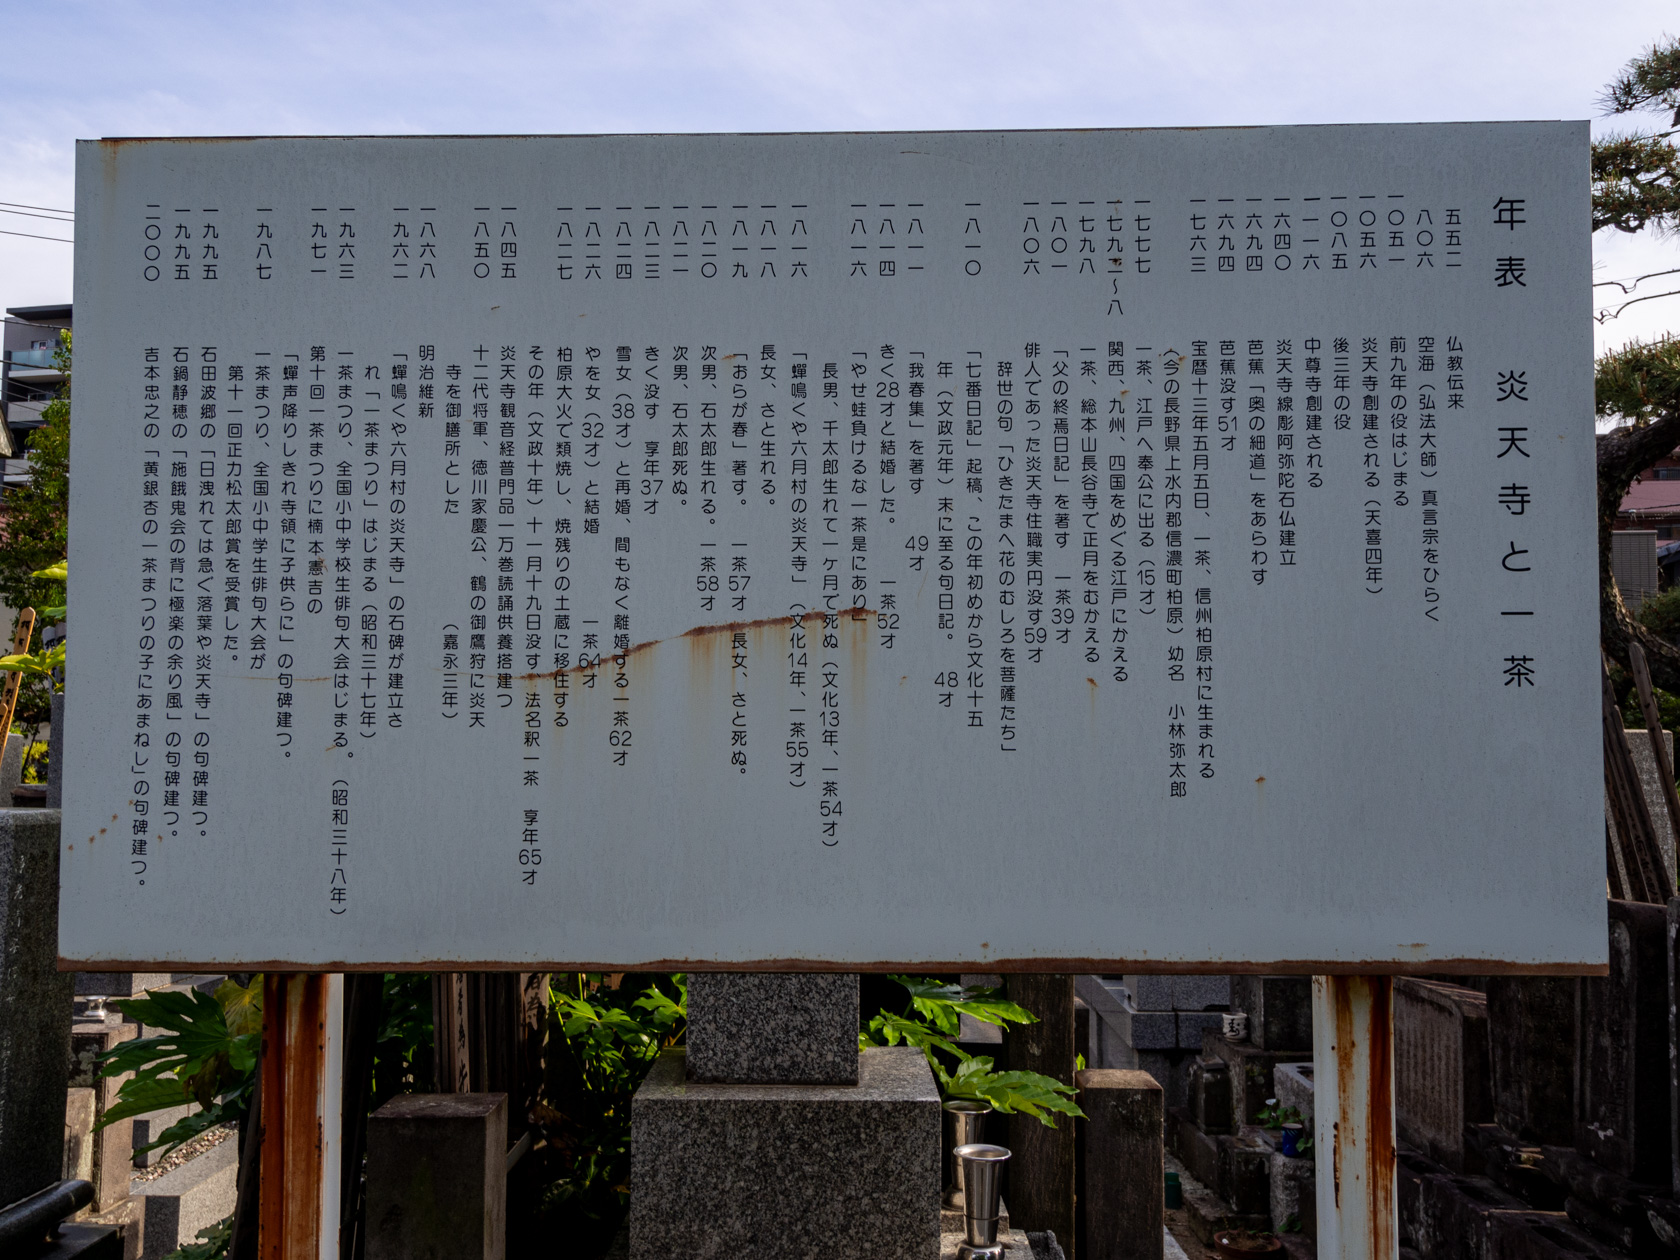 年表 炎天寺と一茶
五五二 仏教伝来
八〇六 空海（弘法大師）真言宗をひらく
一〇五一 前九年の役はじまる
一〇五六 炎天寺創建される（天喜四年）
一〇八五 後三年の役
一一一六 中尊寺創建される
一六四〇 炎天寺線彫阿弥陀石仏建立
一六九四 芭蕉「奥の細道」をあらわす
一六九四 芭蕉没す51才
一七六三 宝暦十三年五月五日、一茶、信州柏原村に生まれる
（今の長野県上水内郡信濃町柏原）幼名 小林弥太郎
一七七七 一茶、江戸へ奉公に出る（15才）
一七九二〜八 関西、九州、四国をめぐる江戸にかえる
一七九八 一茶、総本山長谷寺で正月をむかえる
一八〇一 「父の終焉日記」を著す 一茶39才
一八〇六 俳人であった炎天寺住職実円没す59才
辞世の句「ひきたまへ花のむしろを菩薩たち」
一八一〇 「七番日記」起稿、この年初めから文化十五
年（文政元年）末に至る句日記。 48才
一八一一 「我春集」を著す 49才
一八一四 きく28才と結婚した。 一茶52才
一八一六 「やせ蛙負けるな一茶是にあり」
長男、千太郎生れて一ヶ月で死ぬ（文化13年、一茶54才）
一八一六 「蟬鳴くや六月村の炎天寺」（文化14年、一茶55才）
一八一八 長女、さと生れる。
一八一九 「おらが春」著す。 一茶57才 長女、さと死ぬ。
一八二〇 次男、石太郎生れる。一茶58才
一八二一 次男、石太郎死ぬ。
一八二三 きく没す 享年37才
一八二四 雪女（38才）と再婚、間もなく離婚する一茶62才
一八二六 やを女（32才）と結婚 一茶64才
一八二七 柏原大火で類焼し、焼残りの土蔵に移住する
その年（文政十年）十一月十九日没す 法名釈一茶 享年65才
一八四五 炎天寺観音経普門品一万巻読誦供養搭建つ
一八五〇 十二代将軍、徳川家慶公、鶴の御鷹狩に炎天
寺を御膳所とした （嘉永三年）
一八六八 明治維新
一九六二 「蟬鳴くや六月村の炎天寺」の石碑が建立さ
れ「一茶まつり」はじまる（昭和三十七年）
一九六三 一茶まつり、全国小中学校生俳句大会はじまる。（昭和三十八年）
一九七一 第十回一茶まつりに楠本憲吉の
「蟬声降りしきれ寺領に子供らに」の句碑建つ。
一九八七 一茶まつり、全国小中学生俳句大会が
第十一回正力松太郎賞を受賞した。
一九九五 石田波郷の「日洩れては急ぐ落葉や炎天寺」の句碑建つ。
一九九五 石鍋静穂の「施餓鬼会の背に極楽の余り風」の句碑建つ。
二〇〇〇 吉本忠之の「黄銀杏の一茶まつりの子にあまねし」の句碑建つ。